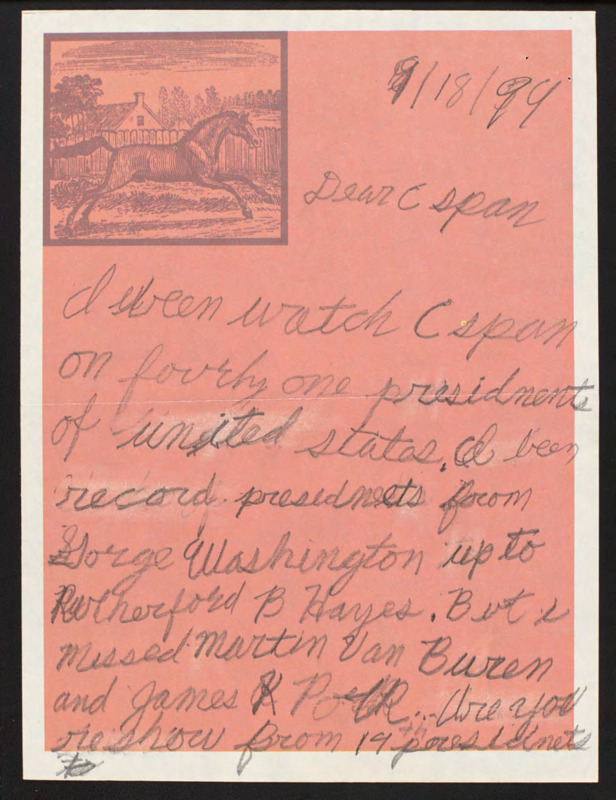 9/18/99
Dear C span
I been watch C span
on fourly one presidnents
of united states. I been
record presednets from
Gorge Washington up to
Rutherford B Hayes. But i
missed Martin Van Buren
and James K Polk... Are you
reshow from 19th presidnets
to